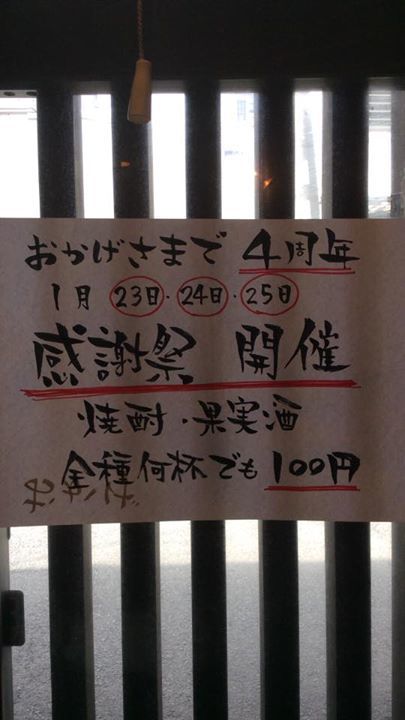 おかげさまで 4周年
1月 23日・24日・25日
感謝祭 開催
焼酎・果実酒
全種何杯でも 100円